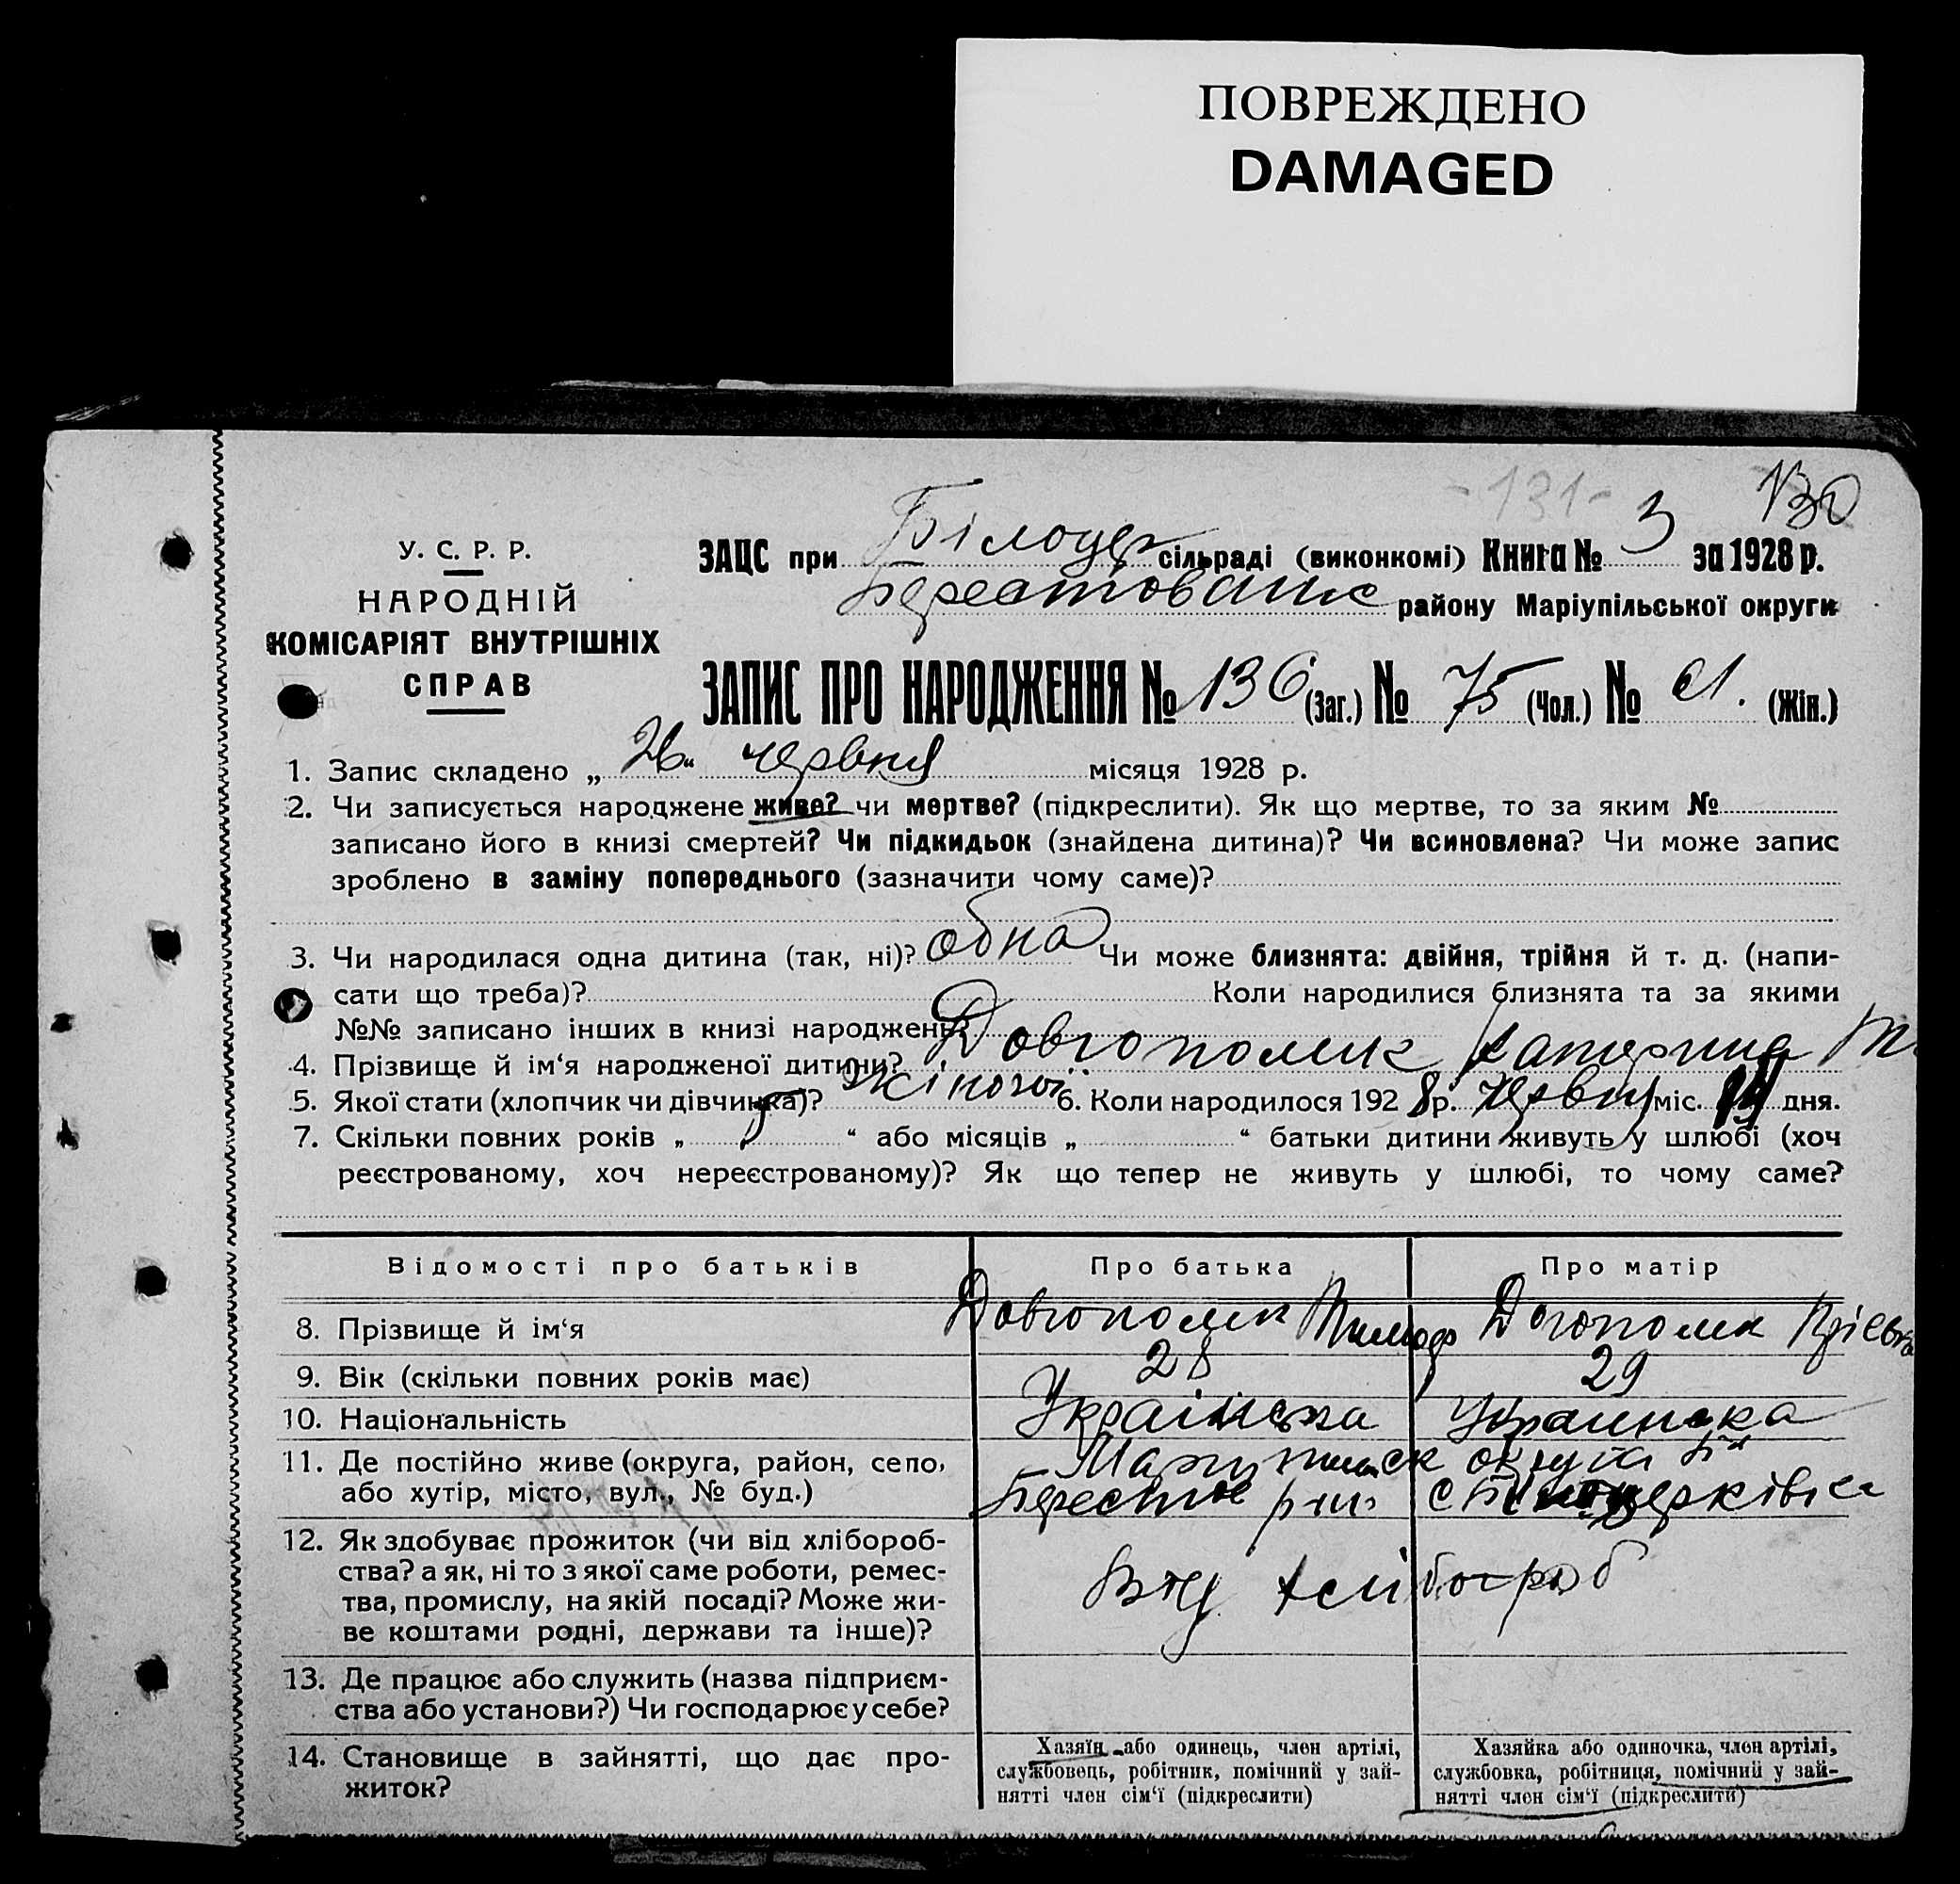 ПОВРЕЖДЕНО
DAMAGED
-131- 130
У. С. Р. Р.
НАРОДНІЙ
КОМІСАРІЯТ ВНУТРІШНІХ
СПРАВ
ЗАЦС при Білоцер сільраді (виконкомі) Книга № 3 за 1928 р.
Берестованс району Маріупільської округи
ЗАПИС ПРО НАРОДЖЕННЯ № 136 (Заг.) № 75 (Чол.) № 61. (Жін.)
1. Запис складено „ 26 “ червня місяця 1928 р.
2. Чи записується народжене живе? чи мертве? (підкреслити). Як що мертве, то за яким №
записано його в книзі смертей? Чи підкидьок (знайдена дитина)? Чи всиновлена? Чи може запис
зроблено в заміну попереднього (зазначити чому саме)?
3. Чи народилася одна дитина (так, ні)? одна Чи може близнята: двійня, трійня й т. д. (напи-
сати що треба)? Коли народилися близнята та за якими
№№ записано інших в книзі народжень?
4. Прізвище й ім‘я народженої дитини? Довгополик Катерина Т.
5. Якої стати (хлопчик чи дівчинка)? жіночої 6. Коли народилося 1928 р. червня міс. дня.
7. Скільки повних років „ 5 “ або місяців „ “ батьки дитини живуть у шлюбі (хоч
реєстрованому, хоч нереєстрованому)? Як що тепер не живуть у шлюбі, то чому саме?
Відомості про батьків Про батька Про матір
8. Прізвище й ім‘я Довгополик Тимоф Догополик
9. Вік (скільки повних років має) 28 29
10. Національність Українська Украинска
11. Де постійно живе (округа, район, село, округа
або хутір, місто, вул., № буд.)
12. Як здобуває прожиток (чи від хлібороб-
ства? а як, ні то з якої саме роботи, ремес-
тва, промислу, на якій посаді? Може жи-
ве коштами родні, держави та інше)? Від хлібороб
13. Де працює або служить (назва підприєм-
ства або установи?) Чи господарює у себе?
14. Становище в зайнятті, що дає про-
житок?
Хазяїн або одинець, член артілі,
службовець, робітник, помічний у зай-
нятті член сім‘ї (підкреслити)
Хазяйка або одиночка, член артілі,
службовка, робітниця, помічний у зай-
нятті член сім‘ї (підкреслити)